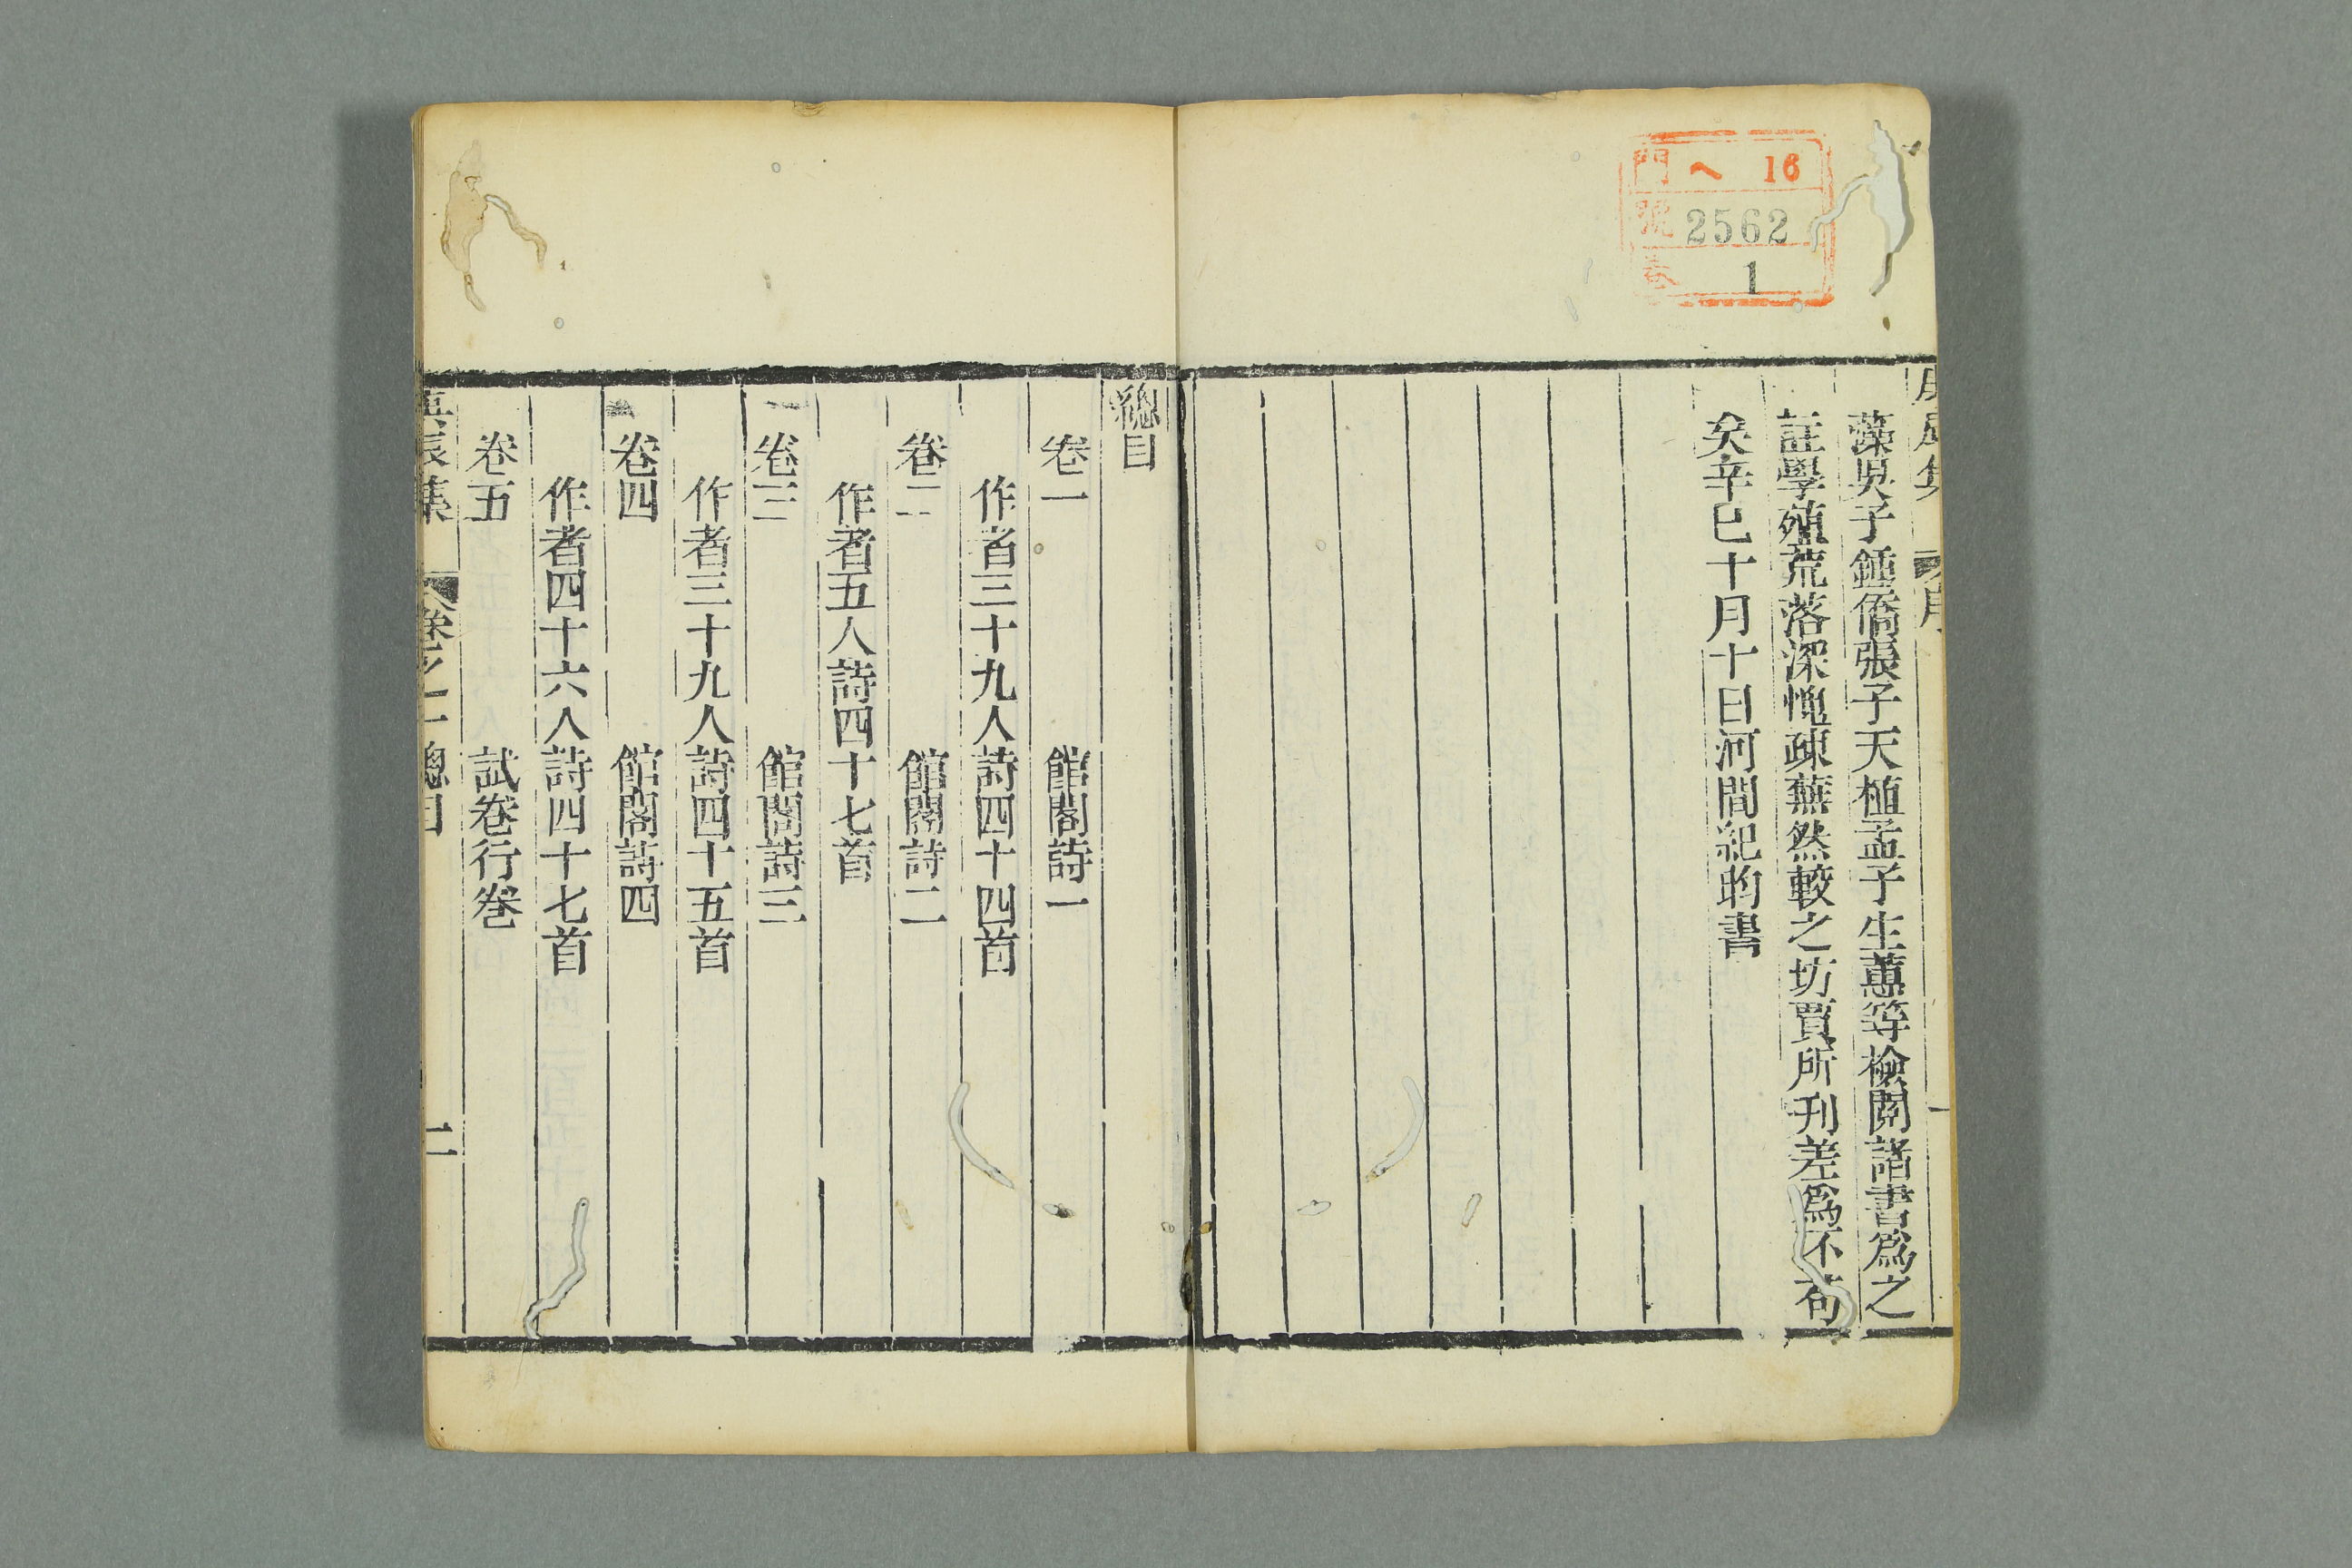 門 ヘ 16
號 2562
卷 1
藻吳子鍾僑張子天植孟子生蕙等檢閱諸書爲之
註學殖荒落深愧疎蕪然較之坊賈所刊差爲不苟
矣辛巳十月十日河間紀昀書
總目
卷一 館閣詩一
作者三十九人詩四十四首
卷二 館閣詩二
作者五人詩四十七首
卷三 館閣詩三
作者三十九人詩四十五首
卷四 館閣詩四
作者四十六人詩四十七首
卷五 試卷行卷
辰集 卷之一總目 二